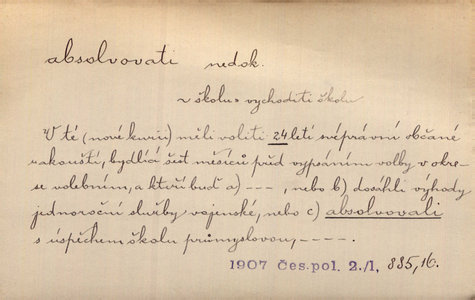 absolvovati nedok.
~ školu = vychoditi školu
V té (nové kurii) měli voleti 24letí svéprávní občané
rakouští, bydlící šest měsíců před vypsáním volby v okre-
se volebním, a kteří buď a) - - -, nebo b) dosáhli výhody
jednoroční služby vojenské, nebo c) absolvovali
s úspěchem školu průmyslovou, - - - -.
1907 Čes. pol. 2./1, 835, 16.